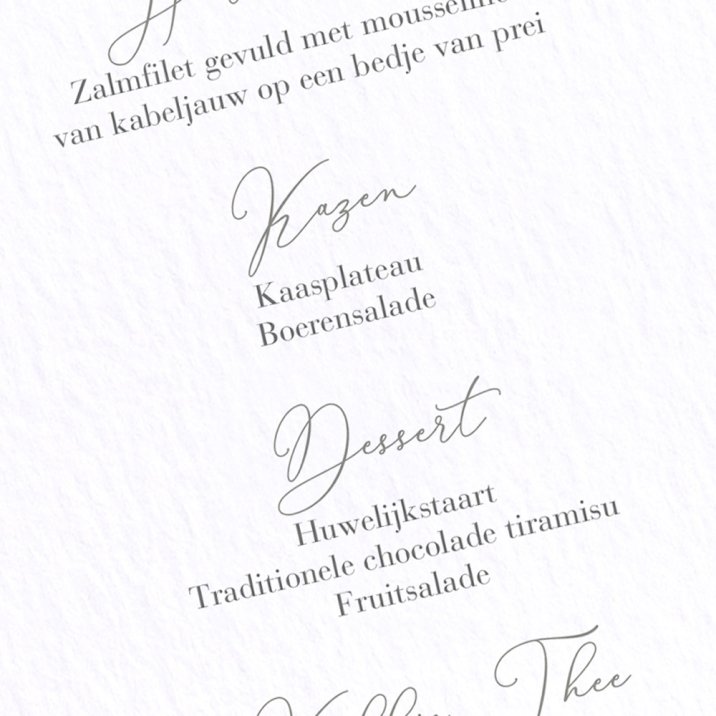 Zalmfilet gevuld met
van kabeljauw op een bedje van prei
Kazen
Kaasplateau
Boerensalade
Dessert
Huwelijkstaart
Traditionele chocolade tiramisu
Fruitsalade
Thee